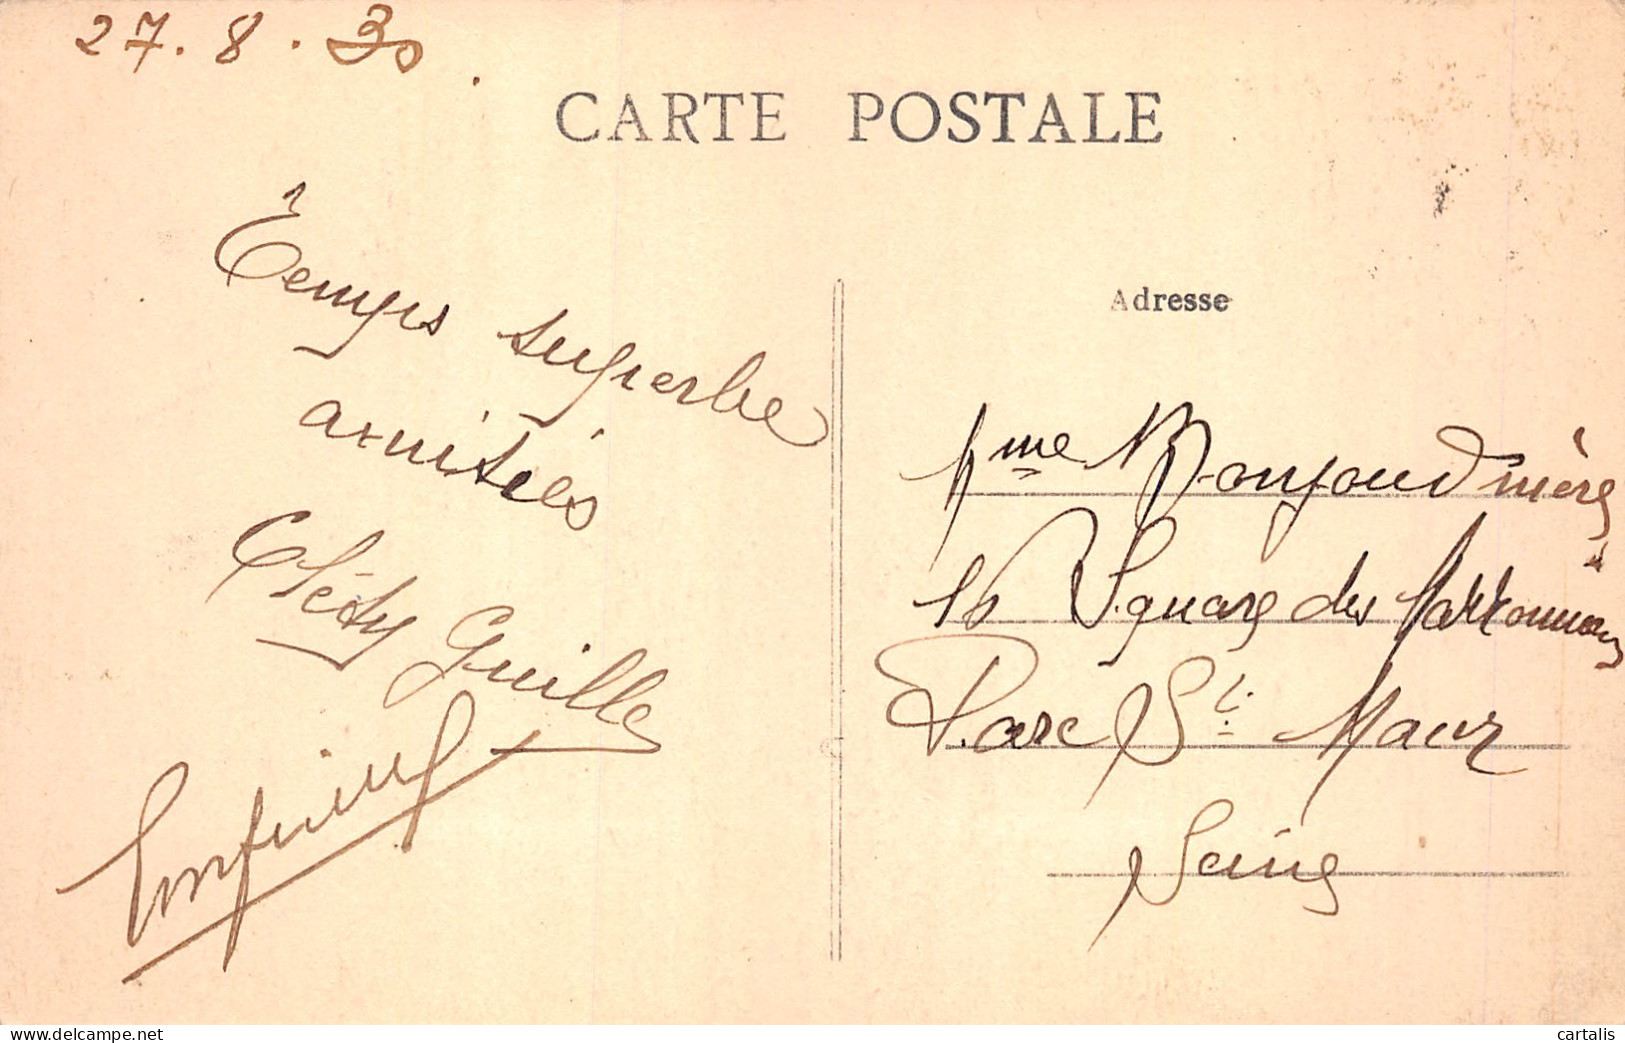 27.8.30
CARTE POSTALE
Temps superbe
amitiés
Cléty Guille
Adresse
Mme Bonjoud mère
16 Square des Marronniers
Parc St. Maur
Seine
www.delcampe.net
cartalis